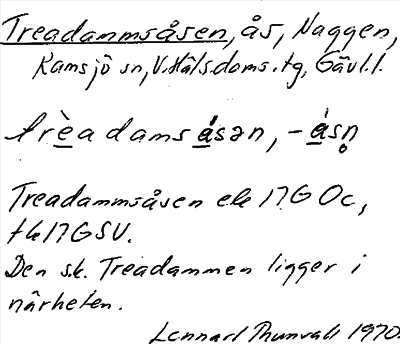 Treadammsåsen, ås, Naggen,
Ramsjö sn, V. Häls. doms. tg, Gävl. l.
trèadamsá̱sən, -á̱sn̥
Treadammsåsen ek 17G Oc,
tk 17G SV.
Den s.k. Treadammen ligger i
närheten.
Lennart Thunvall 1970.